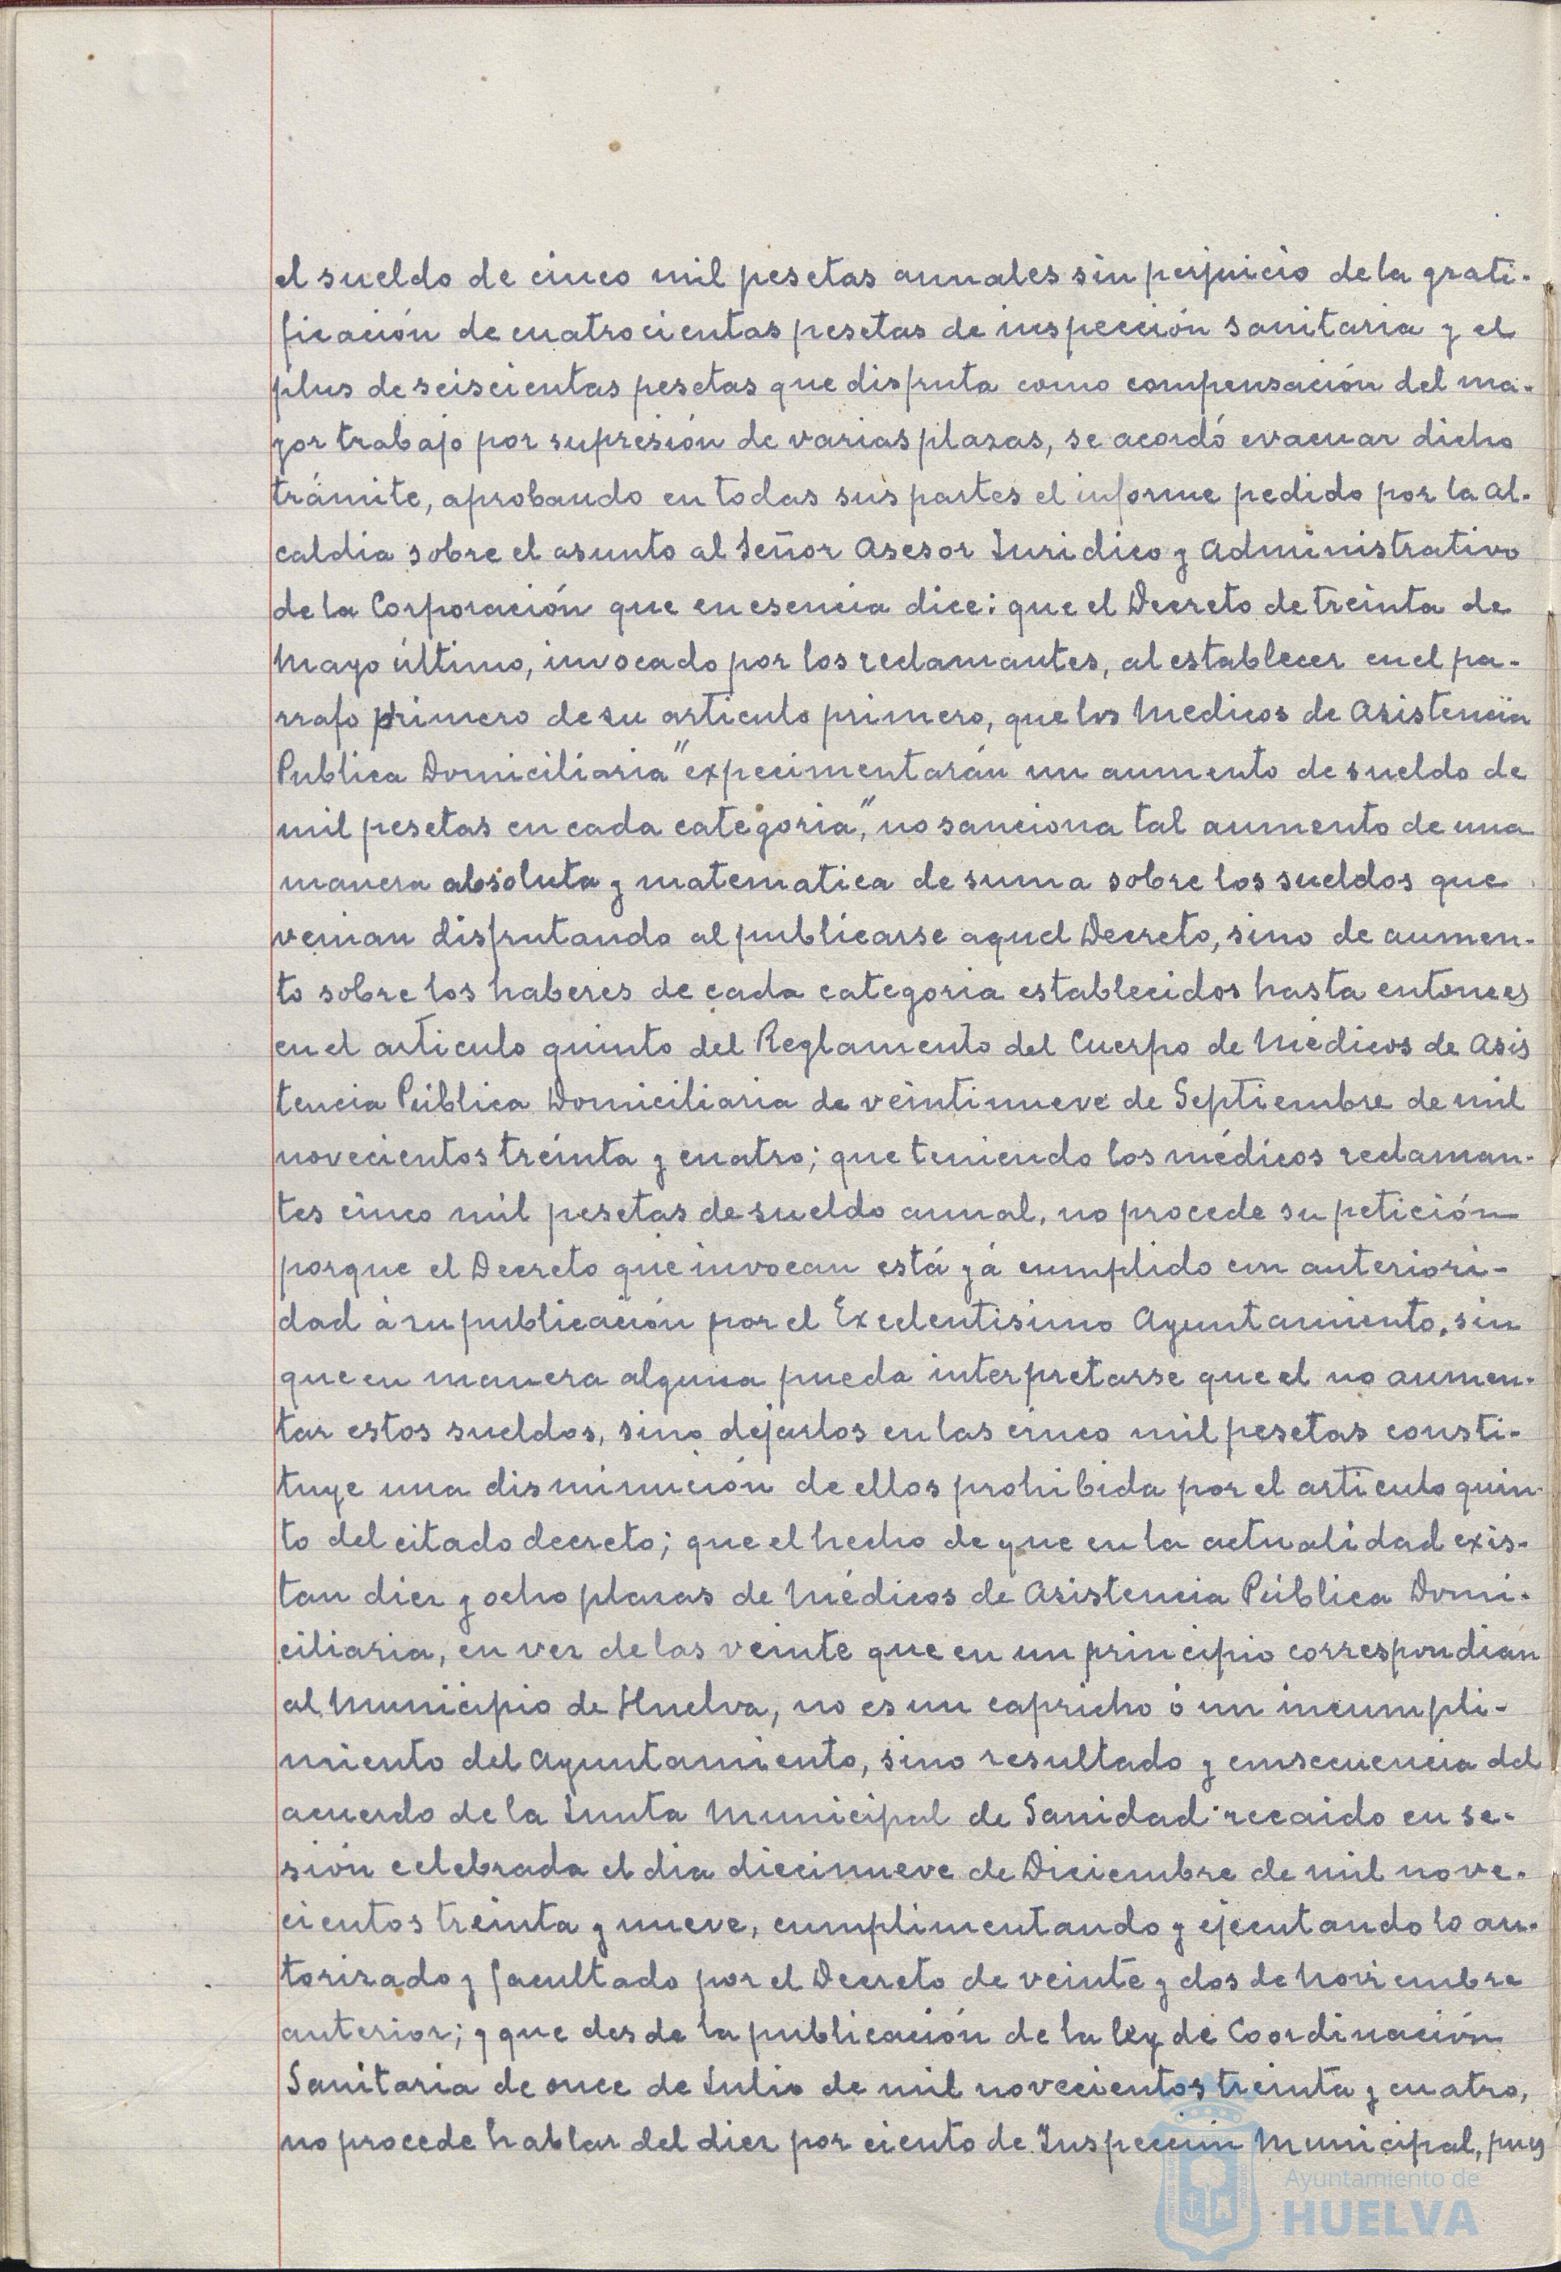 el sueldo de cinco mil pesetas anuales sin perjuicio de la grati-
ficación de cuatrocientas pesetas de inspección sanitaria y el
plus de seiscientas pesetas que disfruta como compensación del ma-
yor trabajo por supresión de varias plazas, se acordó evacuar dicho
trámite, aprobando en todas sus partes el informe pedido por la Al-
caldia sobre el asunto al Señor Asesor Juridico y Administrativo
de la Corporación que en esencia dice: que el Decreto de treinta de
Mayo último, invocado por los reclamantes, al establecer en el pa-
rrafo primero de su articulo primero, que los Medicos de Asistencia
Publica Domiciliaria "expecimentarán un aumento de sueldo de
mil pesetas en cada categoria," no sanciona tal aumento de una
manera absoluta y matematica de suma sobre los sueldos que
venian disfrutando al publicarse aquel Decreto, sino de aumen-
to sobre los haberes de cada categoria establecidos hasta entonces
en el articulo quinto del Reglamento del Cuerpo de Médicos de Asis
tencia Pública Domiciliaria de veintinueve de Septiembre de mil
novecientos treinta y cuatro; que teniendo los médicos reclaman-
tes cinco mil pesetas de sueldo anual, no procede su petición
porque el Decreto que invocan está yá cumplido con anteriori-
dad á su publicación por el Excelentisimo Ayuntamiento, sin
que en manera alguna pueda interpretarse que el no aumen-
tar estos sueldos, sino dejarlos en las cinco mil pesetas consti-
tuye una disminución de ellos prohibida por el articulo quin-
to del citado decreto; que el hecho de que en la actualidad exis-
tan diez y ocho plazas de Médicos de Asistencia Pública Domi-
ciliaria, en vez de las veinte que en un principio correspondian
al Municipio de Huelva, no es un capricho ó un incumpli-
miento del Ayuntamiento, sino resultado y consecuencia del
acuerdo de la Junta Municipal de Sanidad recaido en se-
sión celebrada el dia diecinueve de Diciembre de mil nove-
cientos treinta y nueve, cumplimentando y ejecutando lo au-
torizado y facultado por el Decreto de veinte y dos de Noviembre
anterior; y que desde la publicación de la ley de Coordinación
Sanitaria de once de Julio de mil novecientos treinta y cuatro,
no procede hablar del diez por ciento de Inspección Municipal, pues
Ayuntamiento de
HUELVA